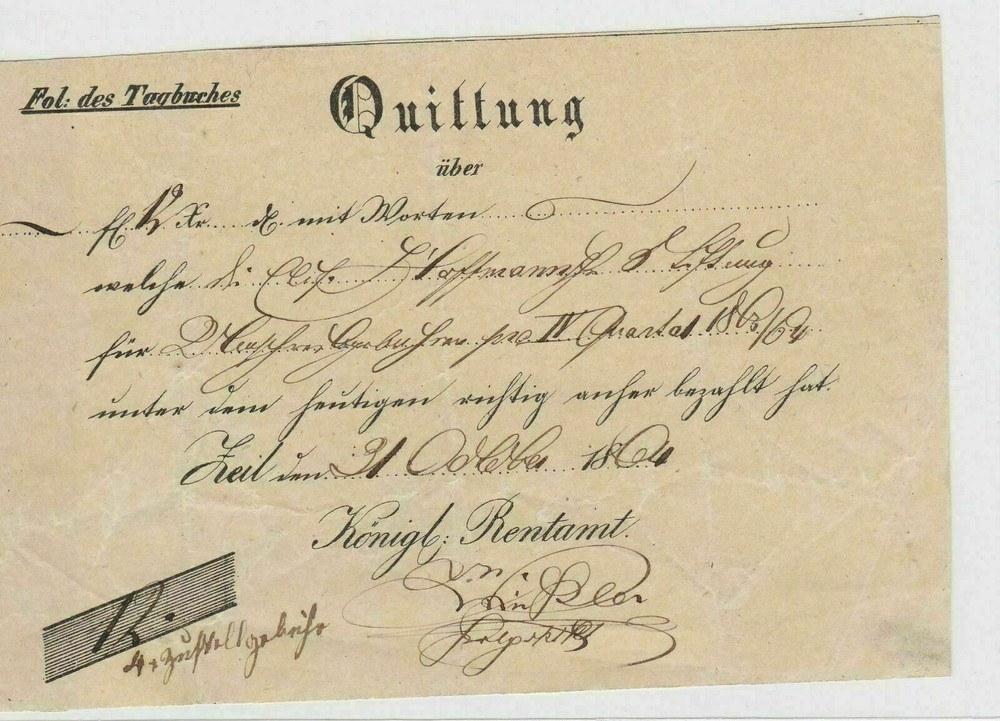 Fol: des Tagbuches
Quittung
über
fl. 12 Xr. dl. mit Worten
welche die Stiftung
für pro IV Quartal 1863/64
unter dem heutigen richtig anher bezahlt hat.
Zeil den 31 October 1864
Königl: Rentamt.
12.
4 x Zustellgebühr